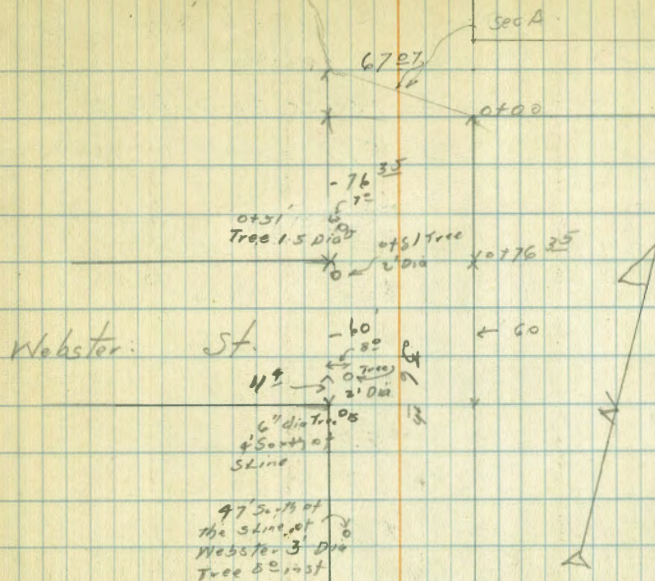 Sec A
67 07
0+00
- 76 35
7⁰
0+51'
Tree 1.5 Dia
0+81 Tree
2' Dia
0+76 35
- 60'
← 60
Webster. St.
8⁰
4⁴
Tree
2' Dia
6" dia Tree
4' South of
S Line
47' South of
the S Line of
Webster 3' Dia
Tree 8⁰ inst
N